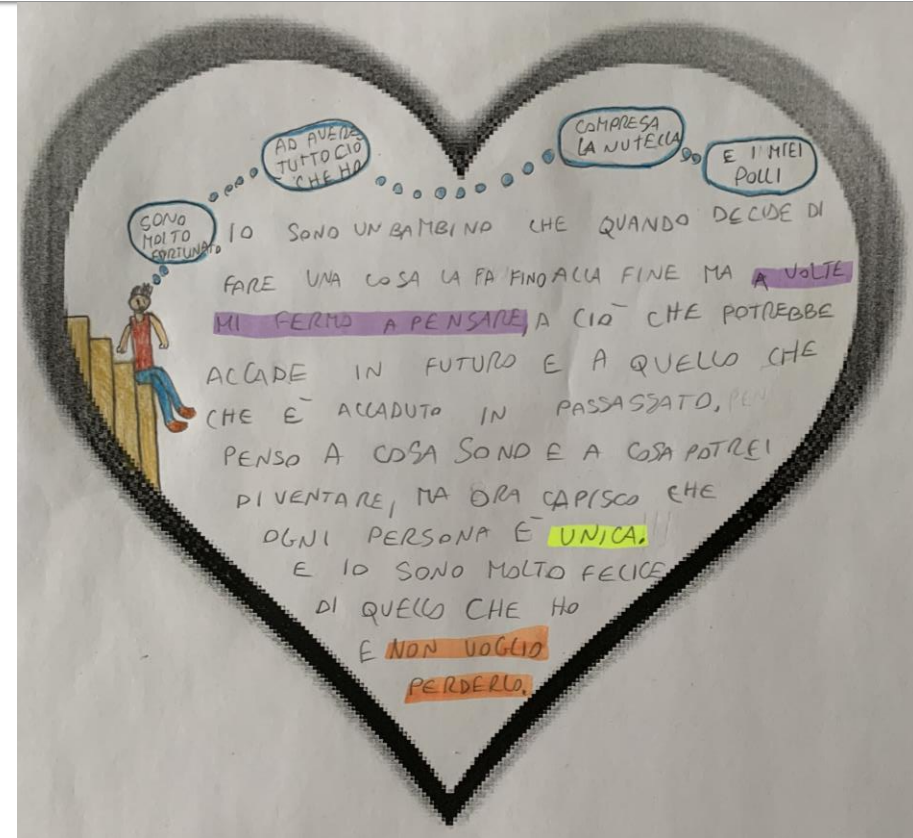 SONO
MOLTO
FORTUNATO
AD AVERE
TUTTO CIÒ
CHE HO
COMPRESA
LA NUTELLA
E I MIEI
POLLI
IO SONO UN BAMBINO CHE QUANDO DECIDE DI
FARE UNA COSA LA FA FINO ALLA FINE MA A VOLTE
MI FERMO A PENSARE, A CIÒ CHE POTREBBE
ACCADE IN FUTURO E A QUELLO CHE
CHE È ACCADUTO IN PASSASSATO, PEN
PENSO A COSA SONO E A COSA POTREI
DIVENTARE, MA ORA CAPISCO CHE
OGNI PERSONA È UNICA.
E IO SONO MOLTO FELICE
DI QUELLO CHE HO
E NON VOGLIO
PERDERLO.